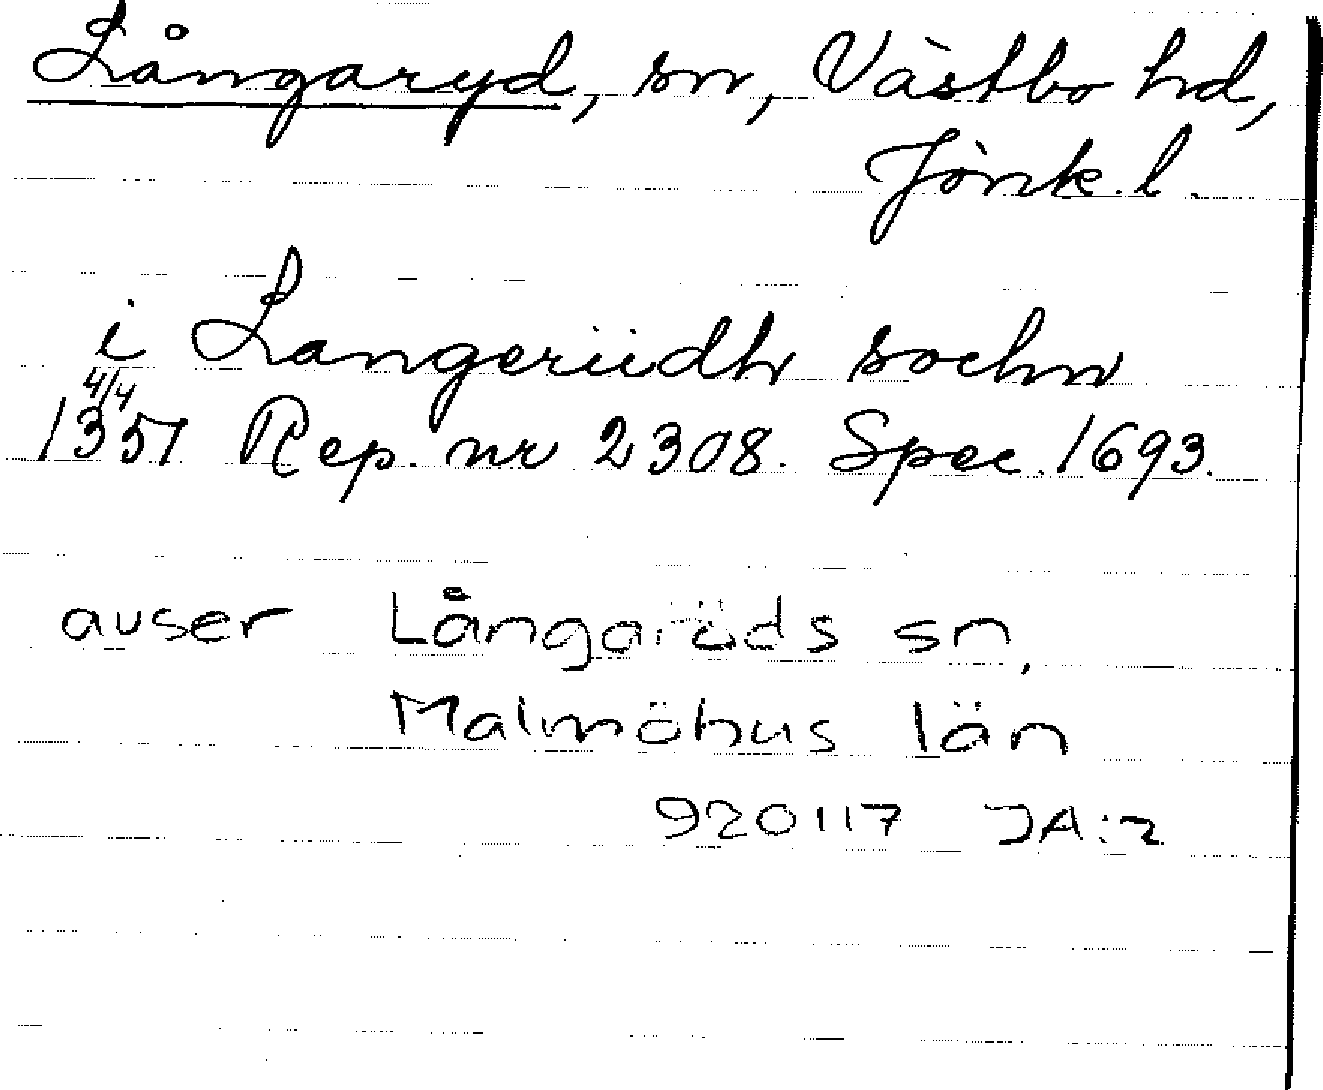 Långaryd, sn, Västbo hd,
Jönk. l.
i Langeriidh sochn
4/4
1351 Rep. nr 2308. Spec. 1693.
avser Långaröds sn,
Malmöhus län
920117 JA:2